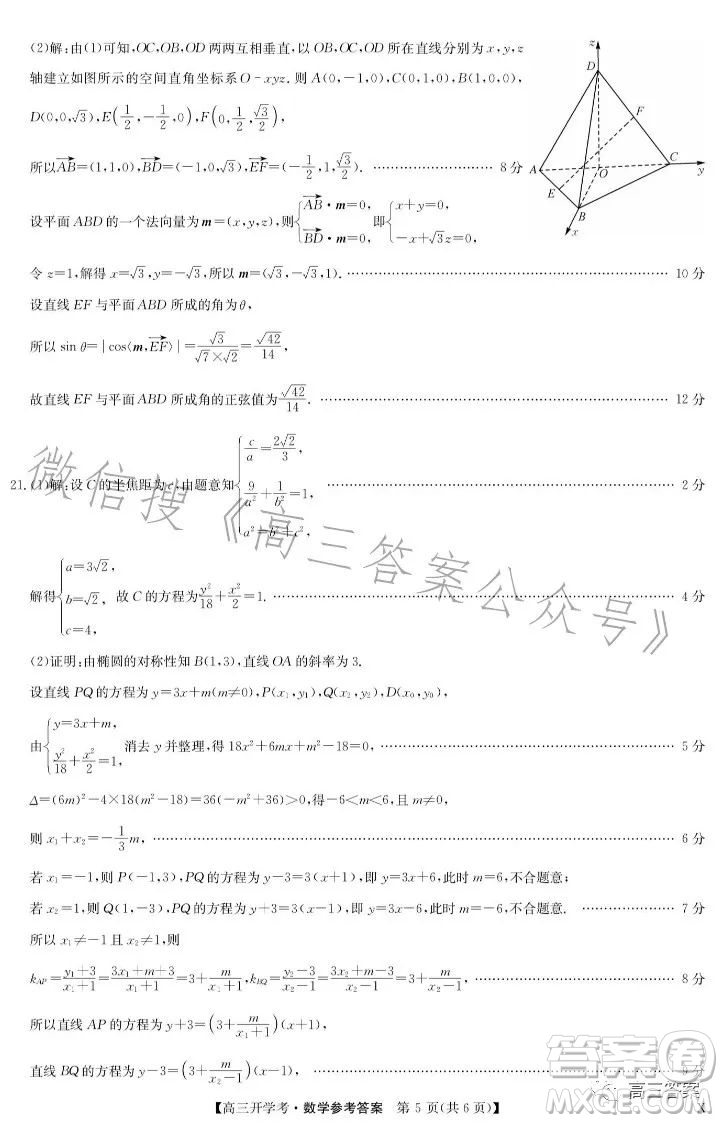 (2)解:由(1)可知,OC,OB,OD 两两互相垂直,以 OB,OC,OD 所在直线分别为 x,y,z
轴建立如图所示的空间直角坐标系 O-xyz. 则 A(0,-1,0),C(0,1,0),B(1,0,0),
D(0,0,√3),E(1/2,-1/2,0),F(0,1/2,√3/2),
所以AB→=(1,1,0),BD→=(-1,0,√3),EF→=(-1/2,1,√3/2). …… 8 分
z
D
F
A
O
C
y
E
B
x
设平面 ABD 的一个法向量为 m=(x,y,z),则{AB→·m=0, BD→·m=0, 即{x+y=0, -x+√3z=0,
令 z=1,解得 x=√3,y=-√3,所以 m=(√3,-√3,1). …… 10 分
设直线 EF 与平面 ABD 所成的角为θ,
所以 sin θ=|cos⟨m,EF→⟩|=√3/(√7×√2)=√42/14,
故直线 EF 与平面 ABD 所成角的正弦值为√42/14. …… 12 分
21.(1)解:设 C 的半焦距为 c,由题意知{c/a=2√2/3, 9/a²+1/b²=1, a²=b²+c², …… 2 分
解得{a=3√2, b=√2, c=4, 故 C 的方程为y²/18+x²/2=1. …… 4 分
(2)证明:由椭圆的对称性知 B(1,3),直线 OA 的斜率为 3.
设直线 PQ 的方程为 y=3x+m(m≠0),P(x₁,y₁),Q(x₂,y₂),D(x₀,y₀),
由{y=3x+m, y²/18+x²/2=1, 消去 y 并整理,得 18x²+6mx+m²-18=0, …… 5 分
Δ=(6m)²-4×18(m²-18)=36(-m²+36)>0,得-6<m<6,且 m≠0,
则 x₁+x₂=-1/3m, …… 6 分
若 x₁=-1,则 P(-1,3),PQ 的方程为 y-3=3(x+1),即 y=3x+6,此时 m=6,不合题意;
若 x₂=1,则 Q(1,-3),PQ 的方程为 y+3=3(x-1),即 y=3x-6,此时 m=-6,不合题意. …… 7 分
所以 x₁≠-1 且 x₂≠1,则
k_AP=(y₁+3)/(x₁+1)=(3x₁+m+3)/(x₁+1)=3+m/(x₁+1),k_BQ=(y₂-3)/(x₂-1)=(3x₂+m-3)/(x₂-1)=3+m/(x₂-1), …… 8 分
所以直线 AP 的方程为 y+3=(3+m/(x₁+1))(x+1),
直线 BQ 的方程为 y-3=(3+m/(x₂-1))(x-1). …… 9 分
【高三开学考·数学参考答案 第 5 页(共 6 页)】 X
微信搜《高三答案公众号》
高三答案
答案圈